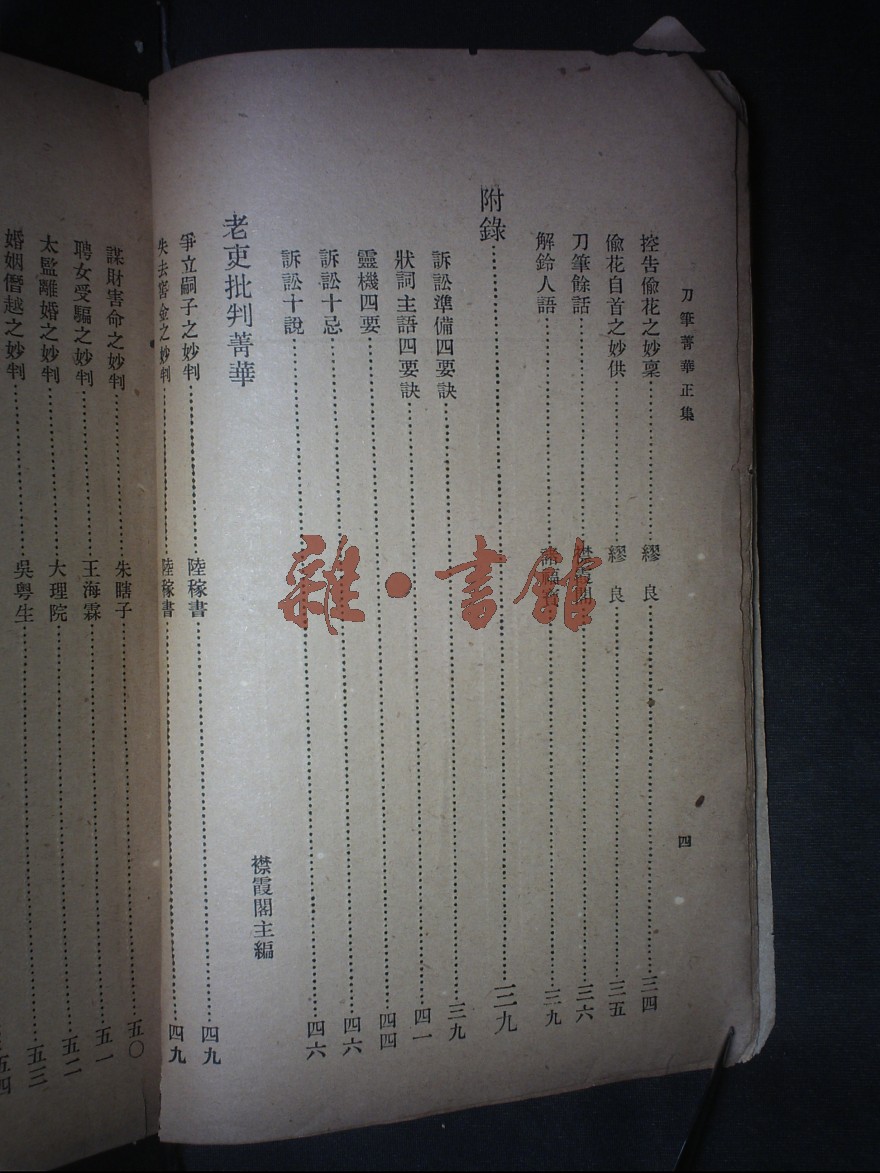 刀筆菁華正集
四
控告偷花之妙稟……繆良……三四
偷花自首之妙供……繆良……三五
刀筆餘話……襟霞閣主……三六
解鈴人語……三九
附錄……三九
訴訟準備四要訣……三九
狀詞主語四要訣……四一
靈機四要……四四
訴訟十忌……四六
訴訟十說……四六
老吏批判菁華 襟霞閣主編
爭立嗣子之妙判……陸稼書……四九
失去窖金之妙判……陸稼書……四九
謀財害命之妙判……朱瞎子……五〇
聘女受騙之妙判……王海霖……五一
太監離婚之妙判……大理院……五二
婚姻僭越之妙判……吳粵生……五三
五四
雜·書館